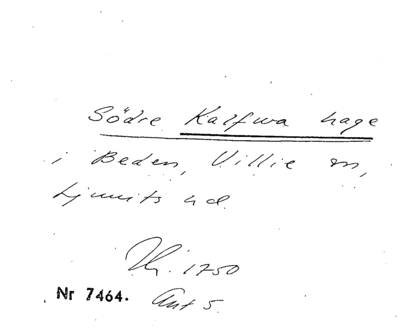 Södre Kalfwa hage
i Beden, Villie sn,
Ljunits hd
Th. 1750
Nr 7464. Ant 5.